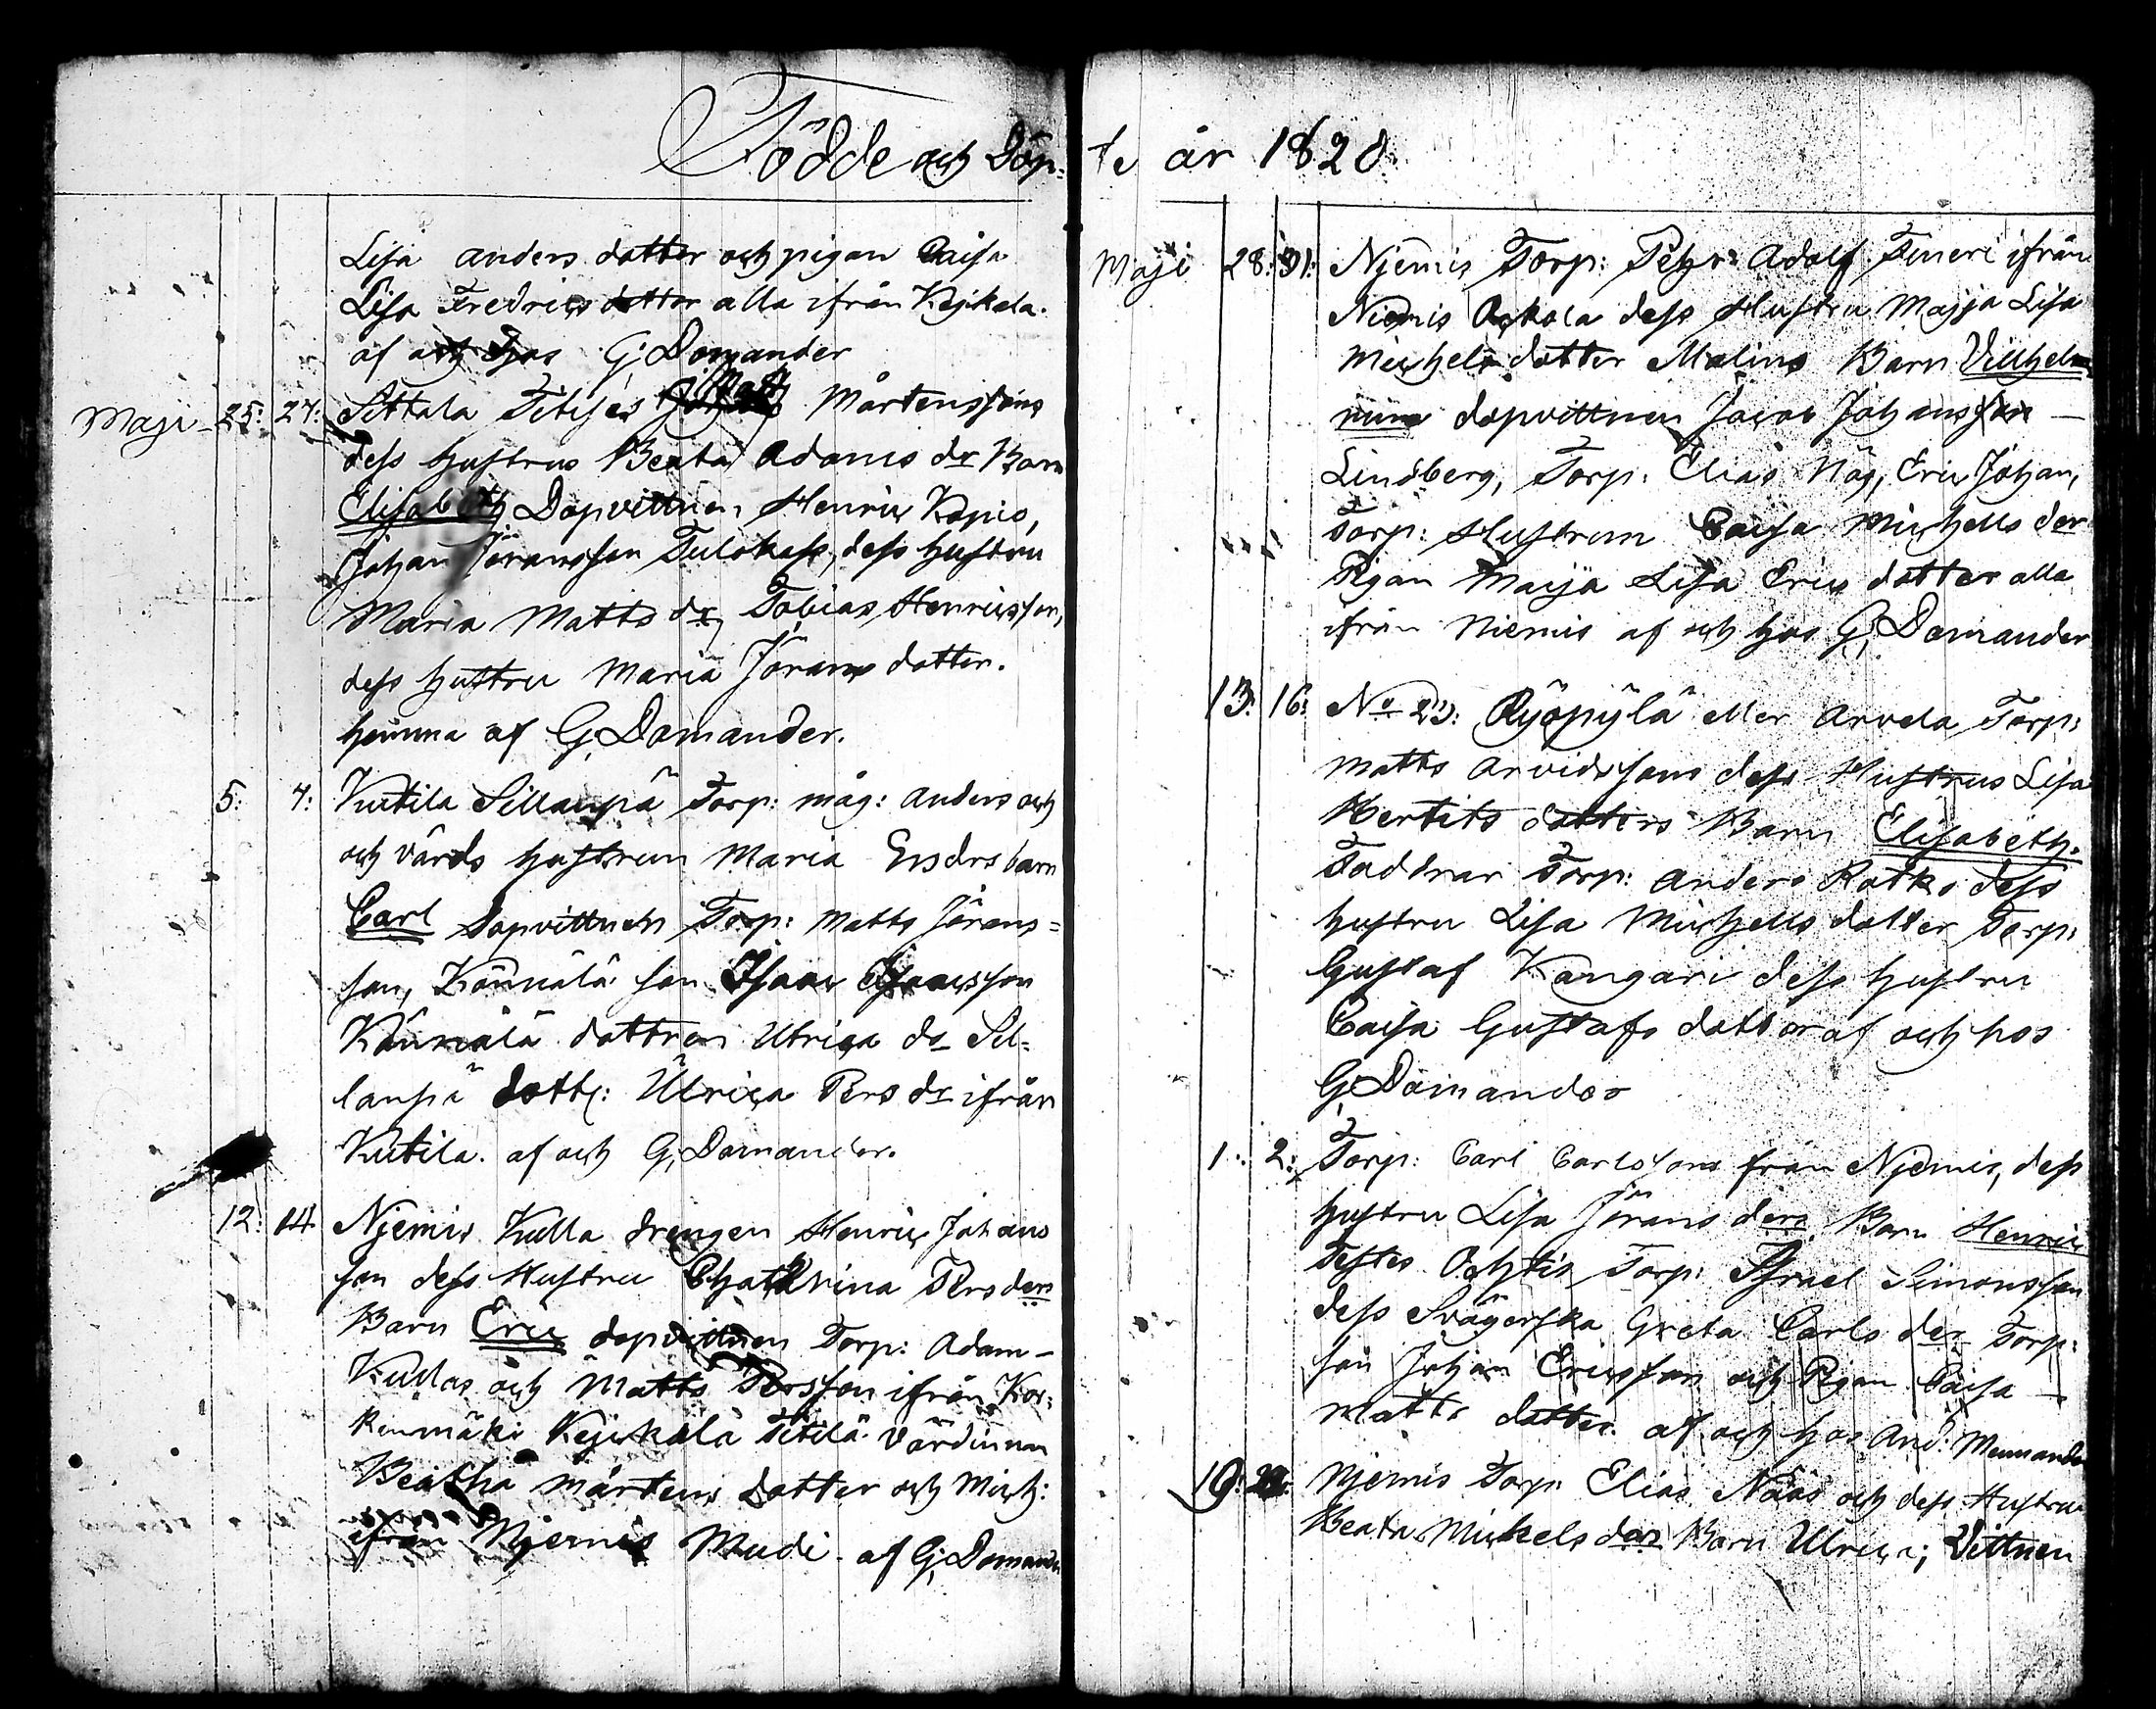 Födde och Döp=
Lisa Anders dotter och pigan Caisa
Lisa Fredrics dotter alla ifrån Kejkala.
af och hos G: Domander
Maji 25: 27: Sittala Mårtenssons
dess hustrus Beata Adams dr Barn
Elisabeth Dopvittnen Henric
Johan Jöransson dess hustru
Maria Matts dr Tobias Henricsson,
dess hustru Maria Jörans dotter.
hemma af G: Domander.
5: 7: Kutila Sillanpä Torp: måg: Anders och
och värds hustrun Maria barn
Carl Dopvittnen Torp: Matts Jörans=
son, Könnölä son Isaac Isaacsson
Könnölä dottren Ulrica dr Sil=
lanpä dott: Ulrica Pers dr ifrån
Kutila. af och G: Domander.
12: 14 Njemis Kulla drengen Henric Johans
son dess Hustru Chatarina Pers drs
Barn Eric dopvittnen Torp: Adam
Kullas och Matts Persson ifrån
Kejkala värdinnan
Beatha Mårtens dotter och Mich:
ifrån Njemis Mudi af G: Domander
te år 1828
Maji 28: 31: Njemis Torp: Pehr Adolf ifrån
Niemis dess Hustru Majja Lisa
Michels dotter Malins Barn Vilhel
mina dopvittnen Jacob Johansson
Lindberg, Torp: Elias Eric Johan,
Torp: Hustrun Caisa Michells der
Pigan Maija Lisa Erics dotter alla
ifrån Niemis af och hos G: Domander
13: 16: No 23: Ryöpylä eller Arvela Torp:
Matts Arvidssons dess Hustrus Lisa
Hertits dotters Barn Elisabeth.
Faddrar Torp: Anders Ratko dess
hustru Lisa Michells dotter Torp:
Gustaf Kangari dess hustru
Caisa Gustafs dotter af och hos
G: Domander
1: 2: Torp: Carl Carlssons från Njemis, dess
hustru Lisa Jörans ders Barn Henric
Testes Torp: Israel Simonsson
dess Svägerska Greta Carls der Torp:
son Johan Ericsson och Pigan Caisa
Matts dotter. af och hos And: Mennander
19: Njemis Torp: Elias Nääs och dess Hustru
Beata Mickels ders Barn Ulrica; Vittnen